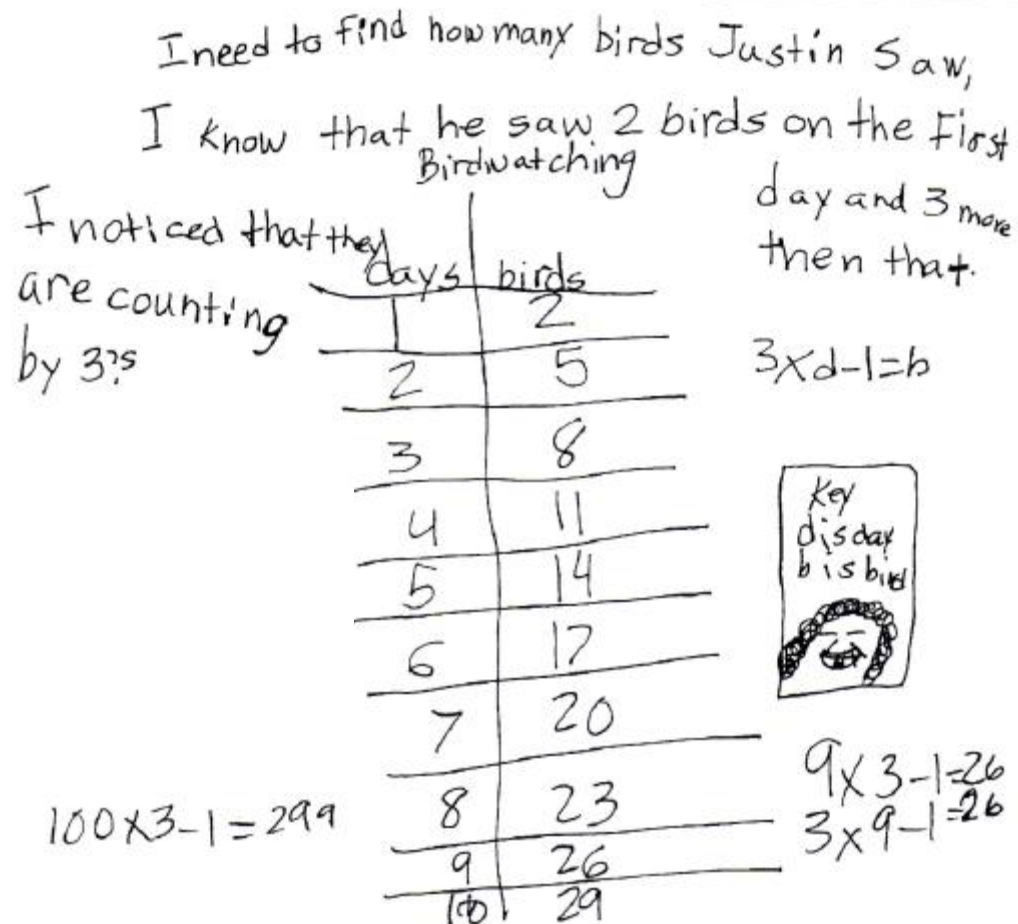 I need to find how many birds Justin Saw,
I know that he saw 2 birds on the First
day and 3 more
then that.
I noticed that they
are counting
by 3?s
Birdwatching
days birds
1 2
2 5
3 8
4 11
5 14
6 17
7 20
8 23
9 26
10 29
3xd-1=b
Key
d is day
b is bird
9x3-1=26
3x9-1=26
100x3-1=299